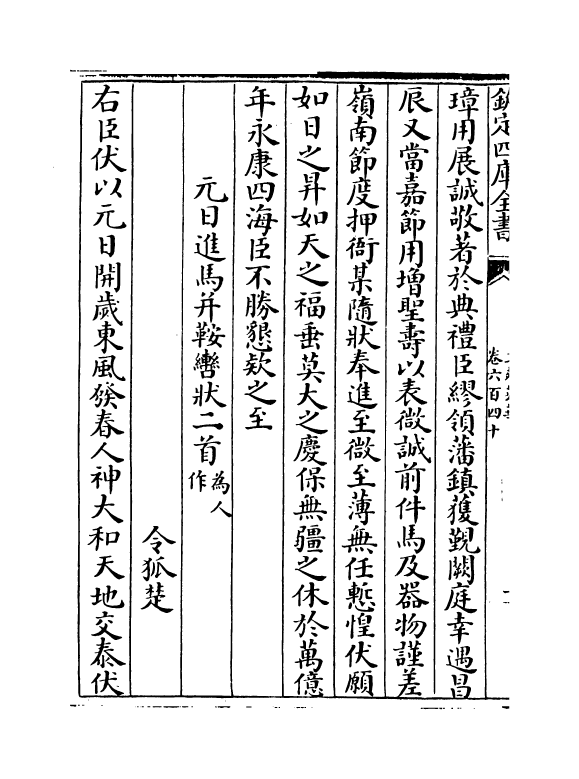 欽定四庫全書
卷六百四十
璋用展誠敬著於典禮臣繆領藩鎮獲覲闕庭幸遇昌
辰又當嘉節用增聖壽以表微誠前件馬及器物謹差
嶺南節度押衙某隨狀奉進至微至薄無任慙惶伏願
如日之昇如天之福垂莫大之慶保無疆之休於萬億
年永康四海臣不勝懇欵之至
元日進馬并鞍轡狀二首為人作
令狐楚
右臣伏以元日開歲東風發春人神大和天地交泰伏